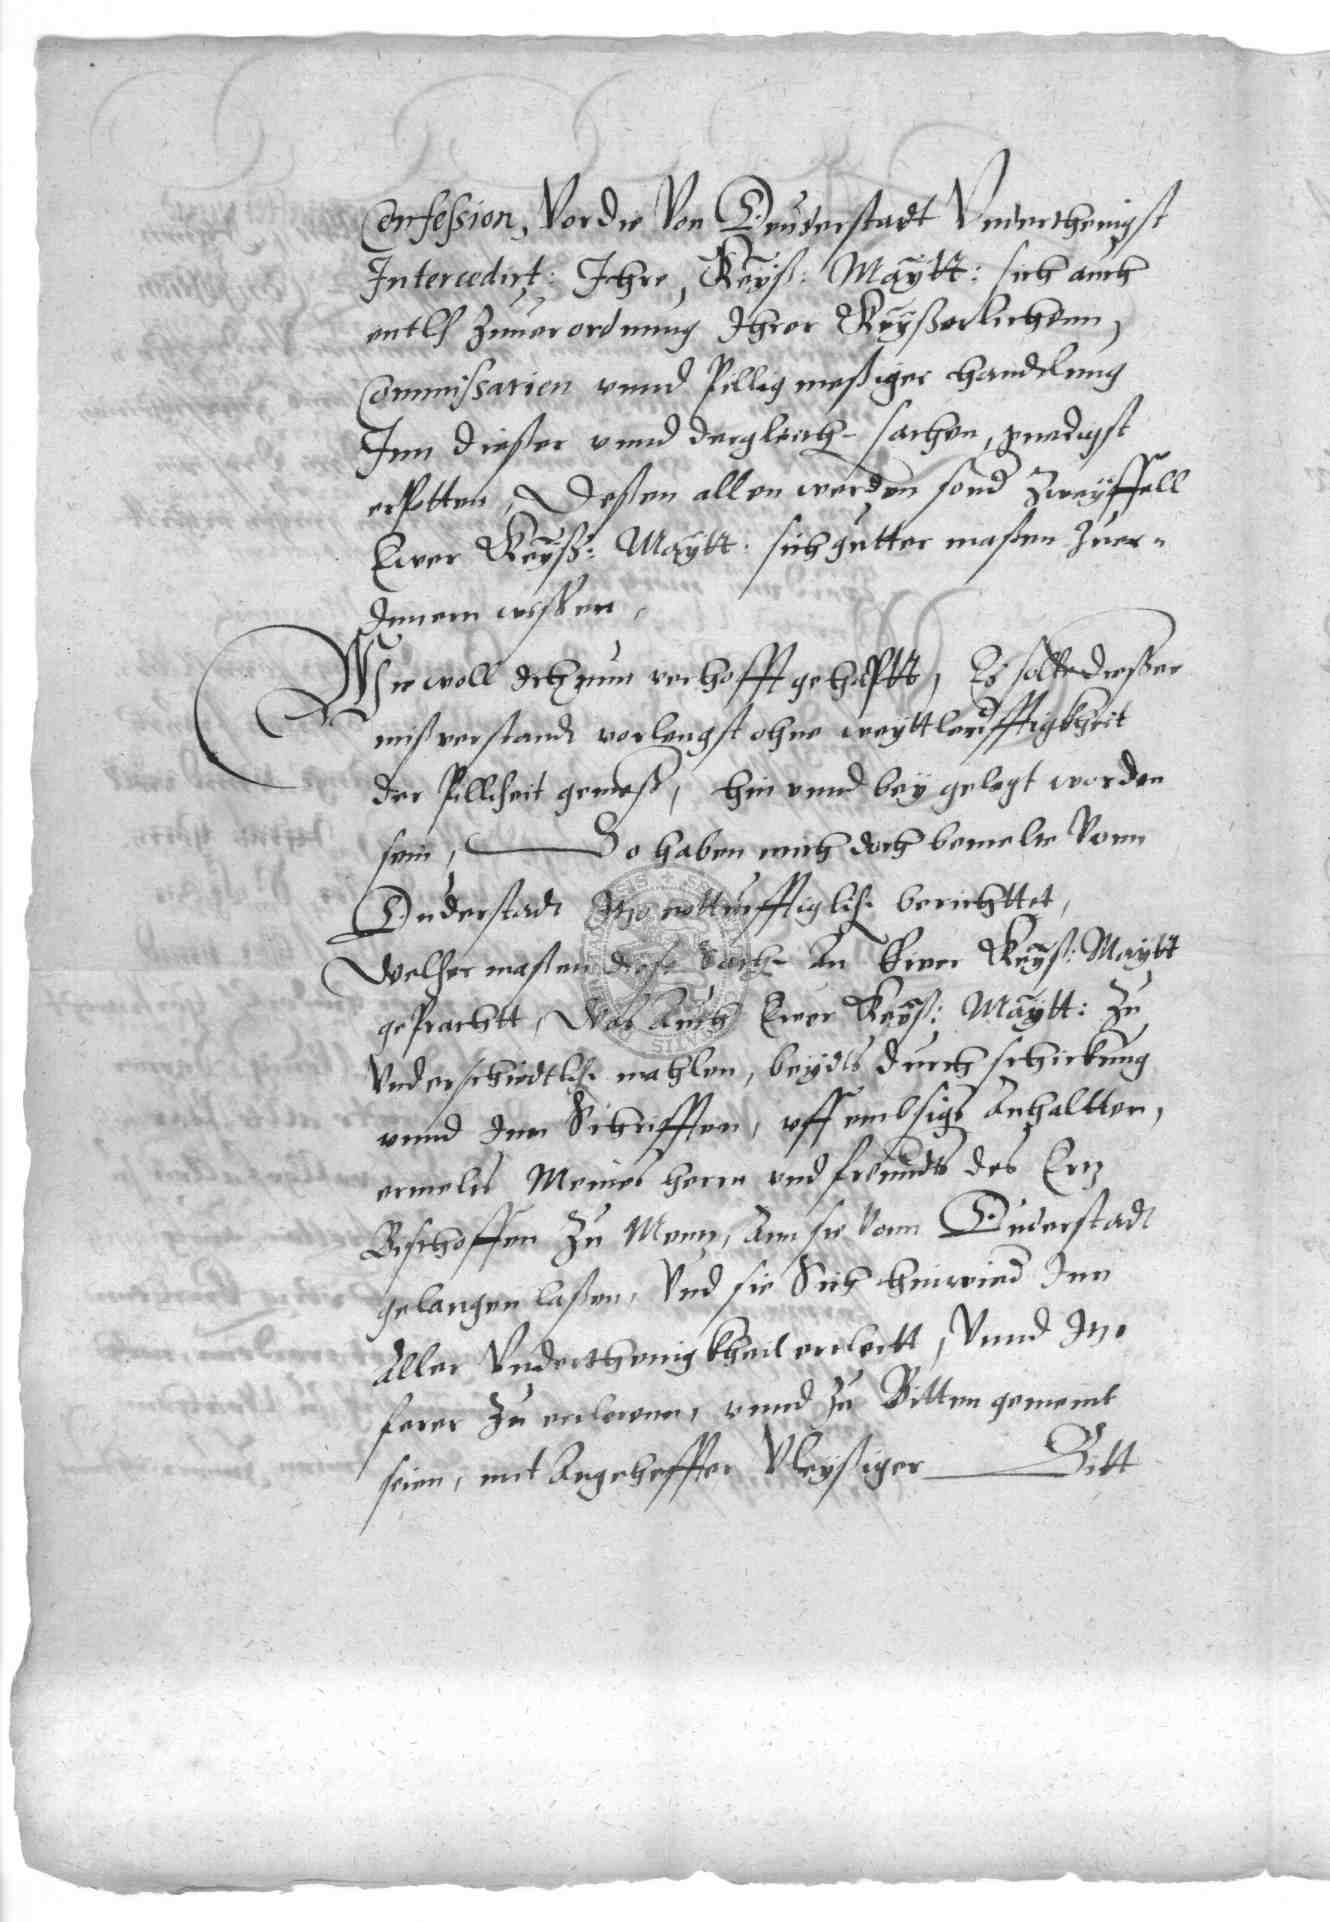 Confession, Vor die Von Deuderstadt Vnderthenigst
Intercedirt: Ihre, Keyß: Maytt: sich auch
entlich zuuerordnung Ihrer Keyßerlichenn,
Commissarien vnnd Pillig meßiger handelung
Inn dießer vnnd dergleich- sachen, gnedigst
erpotten, Deßen allen werden sond Zweyffell
Ewer Keyß: Maytt: sich gutter maßen Zuer-
Innern wissen,
Wie woll Ich nun verhofft gehaptt, Es solte dießer
mißverstandt vorlengst ohne weyttleufftigkheit
der Pillicheit gemeß, hin vnnd bey gelegt worden
sein, So haben mich doch bemelte Vonn
Duderstadt Itzo notturfftiglich berichttet,
Welcher maßen diese Sach- An Ewer Keyß: Maytt
geprachtt, Was Auch Ewer Keyß: Maytt: Zu
Vnderschiedtlich mahlen, beydes durch schickung
vnnd Inn Schrifften, vff embsigs Anhaltten,
ermelts Meines herrn vnd freundts des Ertz
Bischoffen Zu Mentz, Ann sie Vonn Duderstadt
gelangen laßen, Vnd sie Sich hinwied Inn
Aller Vnderthenigkheit erclertt, Vnnd Itzo
ferer Zu ercleren, vnnd Zu Bitten gemeint
seien, mit Angehefter Vleyßiger Bitt